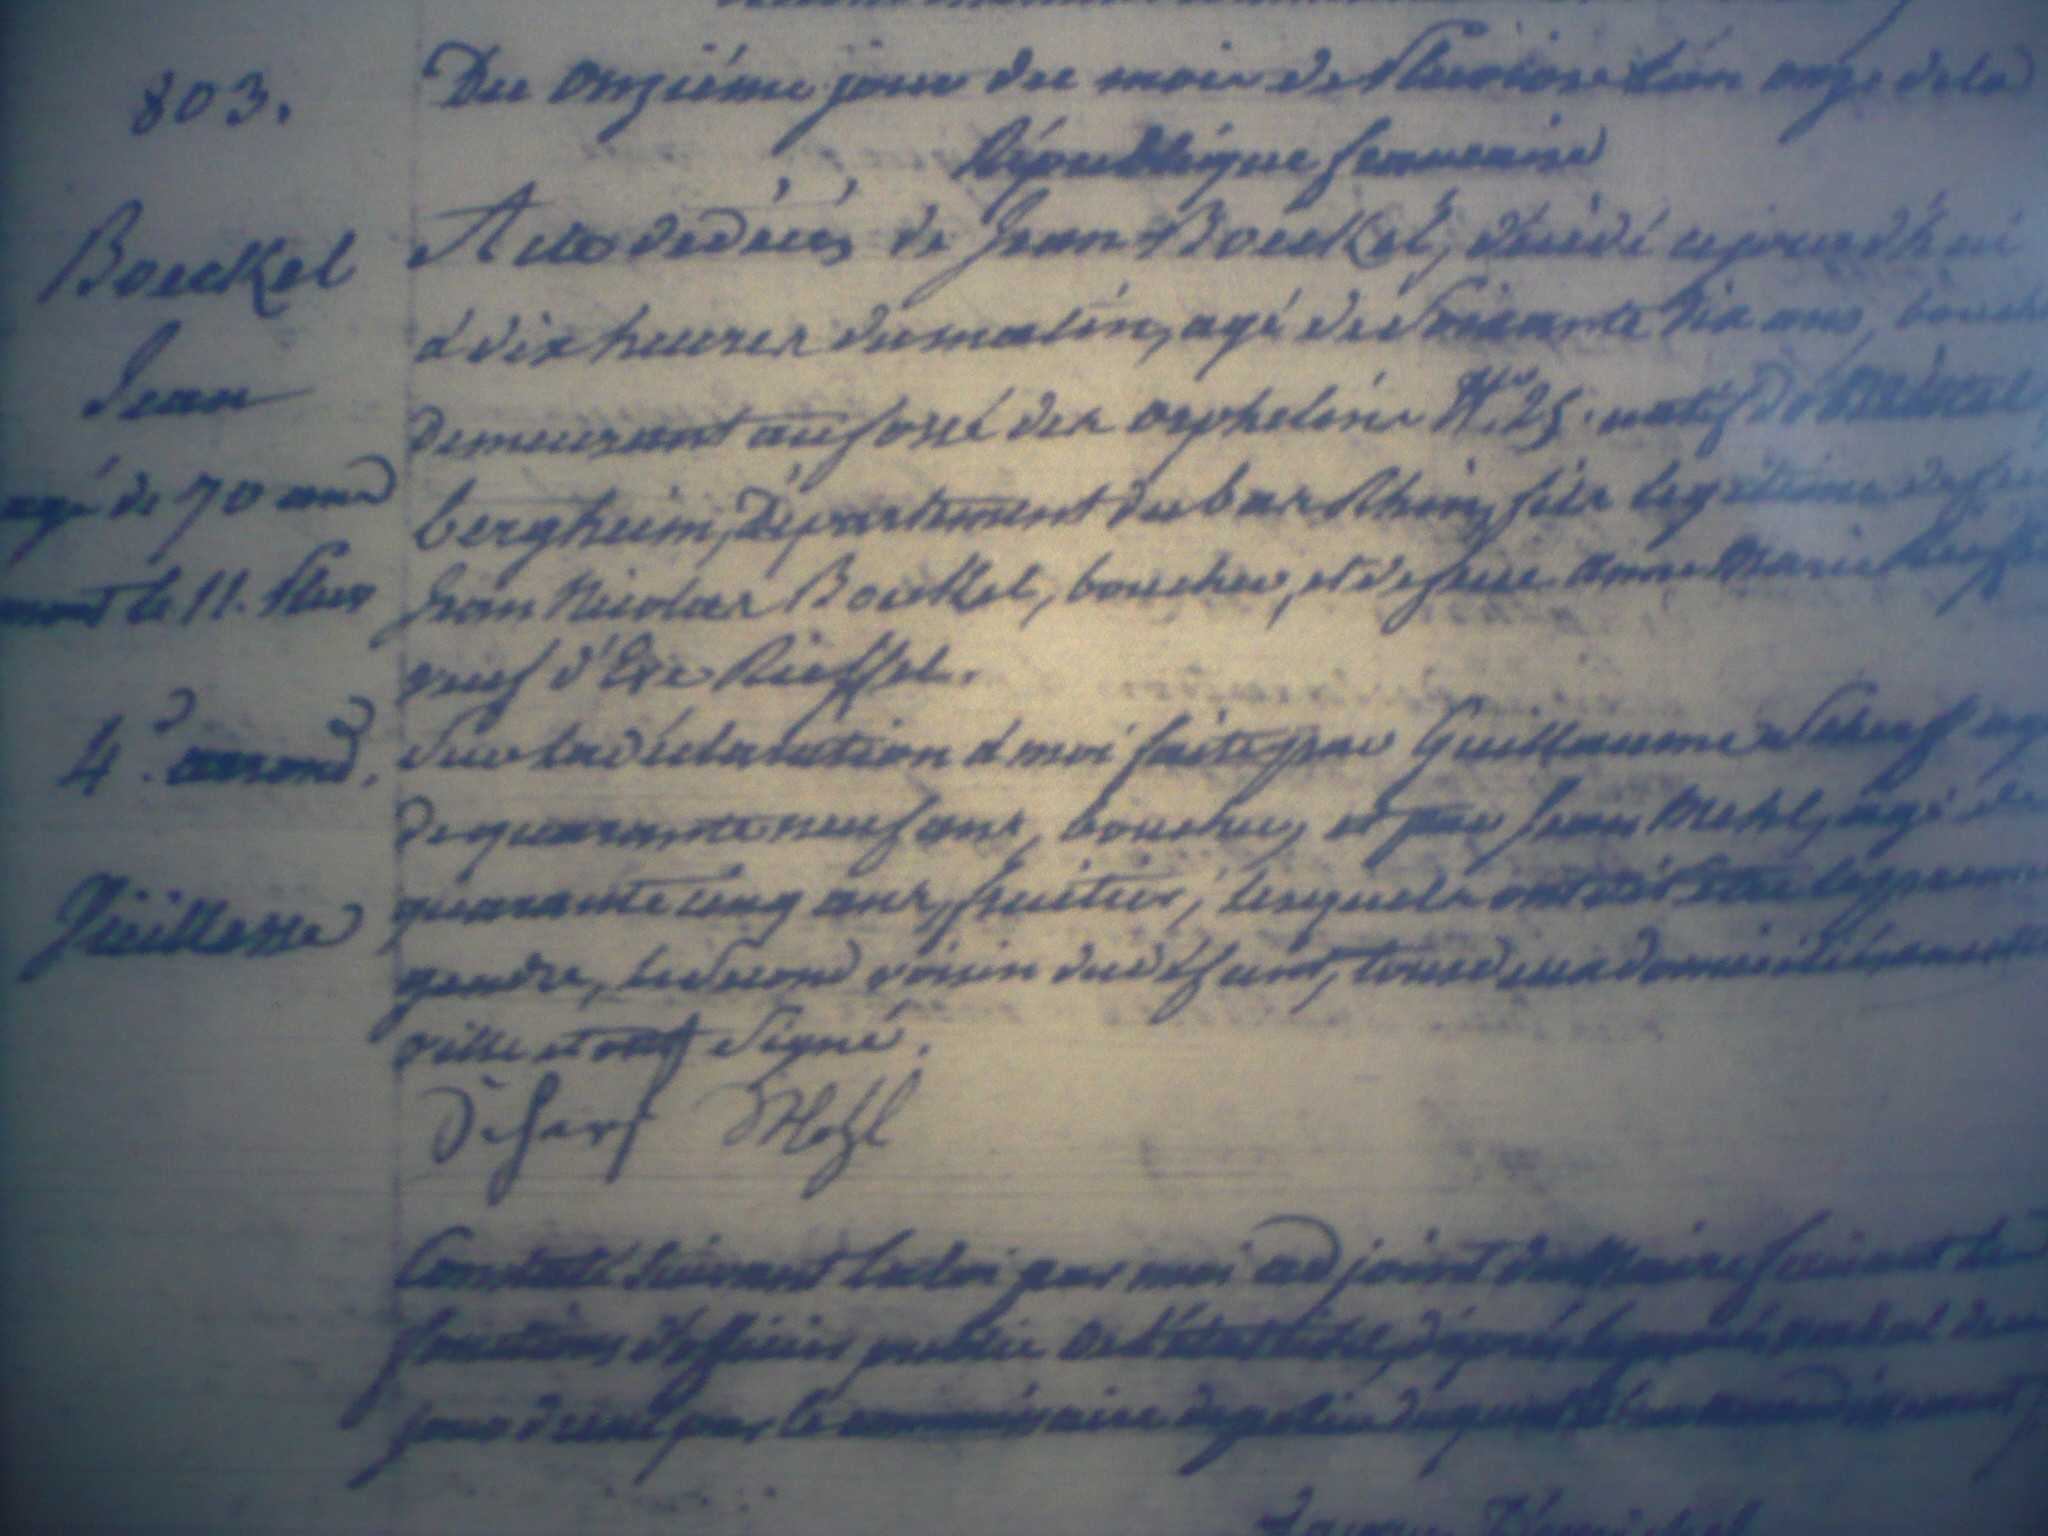 803.
Du onzième jour du mois de Pluviose l'an onze de la
République francaise
Boeckel
Jean
agé de 70 ans
mort le 11. Pluv
4.e arrond.
Vieillesse
Acte de décès de Jean Boeckel, décédé cejourd'hui
à dix heures du matin, agé de soixante dix ans,
demeurant au fossé des orphelins N.o 25. natif
bergheim, Département du bas Rhin, fils légitime de feu
Jean Nicolas Boeckel, boucher, et de feue Anne Marie
veuf d'Eve Rieffel.
Sur la déclaration à moi faite par Guillaume Scherf
de quarante neuf ans, boucher, et par Jean Mehl, agé de
quarante cinq ans, fruitier, lesquels ont dit être le premier
gendre, le second voisin du défunt, tous deux domiciliés en cette
ville et ont signé.
Scherf Mehl
Constaté suivant la loi par moi adjoint du Maire faisant les
fonctions d'officier public de l'état civil, d'après le procès verbal de ce
jour dressé par le commissaire de police du quatrième arrondissement